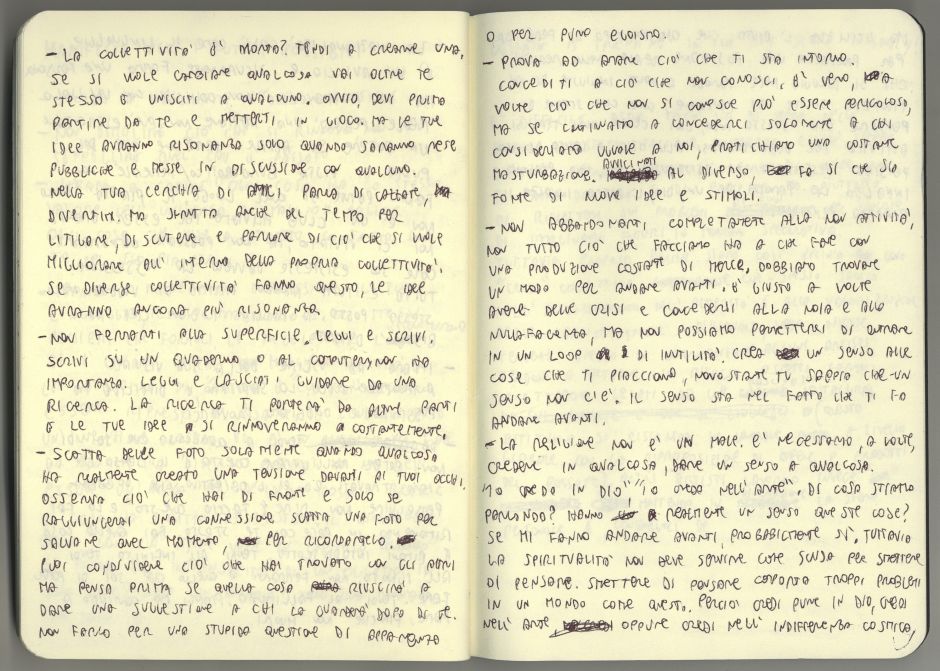 – LA COLLETTIVITÀ È MORTA? TENDI A CREARNE UNA,
SE SI VUOLE CAMBIARE QUALCOSA VAI OLTRE TE
STESSO E UNISCITI A QUALCUNO. OVVIO, DEVI PRIMA
PARTIRE DA TE E METTERTI IN GIOCO. MA LE TUE
IDEE AVRANNO RISONANZA SOLO QUANDO SARANNO RESE
PUBBLICHE E MESSE IN DISCUSSIONE CON QUALCUNO.
NELLA TUA CERCHIA DI PARLA DI CAZZATE,
DIVERTITI, MA SFRUTTA ANCHE DEL TEMPO PER
LITIGARE, DISCUTERE E PARLARE DI CIÒ CHE SI VUOLE
MIGLIORARE ALL'INTERNO DELLA PROPRIA COLLETTIVITÀ.
SE DIVERSE COLLETTIVITÀ FANNO QUESTO, LE IDEE
AVRANNO ANCORA PIÙ RISONANZA.
– NON FERMARTI ALLA SUPERFICIE. LEGGI E SCRIVI.
SCRIVI SU UN QUADERNO O AL COMPUTER, NON HA
IMPORTANZA. LEGGI E LASCIATI GUIDARE DA UNA
RICERCA. LA RICERCA TI PORTERÀ DA ALTRE PARTI
E LE TUE IDEE SI RINNOVERANNO COSTANTEMENTE.
– SCATTA DELLE FOTO SOLAMENTE QUANDO QUALCOSA
HA REALMENTE CREATO UNA TENSIONE DAVANTI AI TUOI OCCHI.
OSSERVA CIÒ CHE HAI DI FRONTE E SOLO SE
RAGGIUNGERAI UNA CONNESSIONE SCATTA UNA FOTO PER
SALVARE QUEL MOMENTO, PER RICORDARTELO
PUOI CONDIVIDERE CIÒ CHE HAI TROVATO CON GLI ALTRI
MA PENSA PRIMA SE QUELLA COSA RIUSCIRÀ A
DARE UNA SUGGESTIONE A CHI LA GUARDERÀ DOPO DI TE.
NON FARLO PER UNA STUPIDA QUESTIONE DI APPARENZA
O PER PURO EGOISMO.
– PROVA AD AMARE CIÒ CHE TI STA INTORNO.
CONCEDITI A CIÒ CHE NON CONOSCI. È VERO, A
VOLTE CIÒ CHE NON SI CONOSCE PUÒ ESSERE PERICOLOSO,
MA SE CONTINUIAMO A CONCEDERCI SOLAMENTE A CHI
CONSIDERIAMO UGUALE A NOI, PRATICHIAMO UNA COSTANTE
MASTURBAZIONE. AVVICINATI AL DIVERSO, FA SI CHE SIA
FONTE DI NUOVE IDEE E STIMOLI.
– NON ABBANDONARTI COMPLETAMETE ALLA NON ATTIVITÀ,
NON TUTTO CIÒ CHE FACCIAMO HA A CHE FARE CON
UNA PRODUZIONE COSTATE DI MERCE. DOBBIAMO TROVARE
UN MODO PER ANDARE AVANTI. È GIUSTO A VOLTE
AVERE DELLE CRISI E CONCEDERSI ALLA NOIA E ALLA
NULLAFACENZA, MA NON POSSIAMO PERMETTERCI DI ENTRARE
IN UN LOOP DI INUTILITÀ. CREA UN SENSO ALLE
COSE CHE TI PIACCIONO, NONOSTANTE TU SAPPIA CHE UN
SENSO NON C'È. IL SENSO STA NEL FATTO CHE TI FA
ANDARE AVANTI.
– LA RELIGIONE NON È UN MALE. È NECESSARIO, A VOLTE,
CREDERE IN QUALCOSA, DARE UN SENSO A QUALCOSA.
"IO CREDO IN DIO" "IO CREDO NELL'ARTE". DI COSA STIAMO
PARLANDO? HANNO REALMENTE UN SENSO QUESTE COSE?
SE MI FANNO ANDARE AVANTI, PROBABILMENTE SÌ, TUTTAVIA
LA SPIRITUALITÀ NON DEVE SERVIRE COME SCUSA PER SMETTERE
DI PENSARE. SMETTERE DI PENSARE COMPORTA TROPPI PROBLEMI
IN UN MONDO COME QUESTO. PERCIÒ CREDI PURE IN DIO, CREDI
NELL'ARTE OPPURE CREDI NELL'INDIFFERENZA COSMICA,